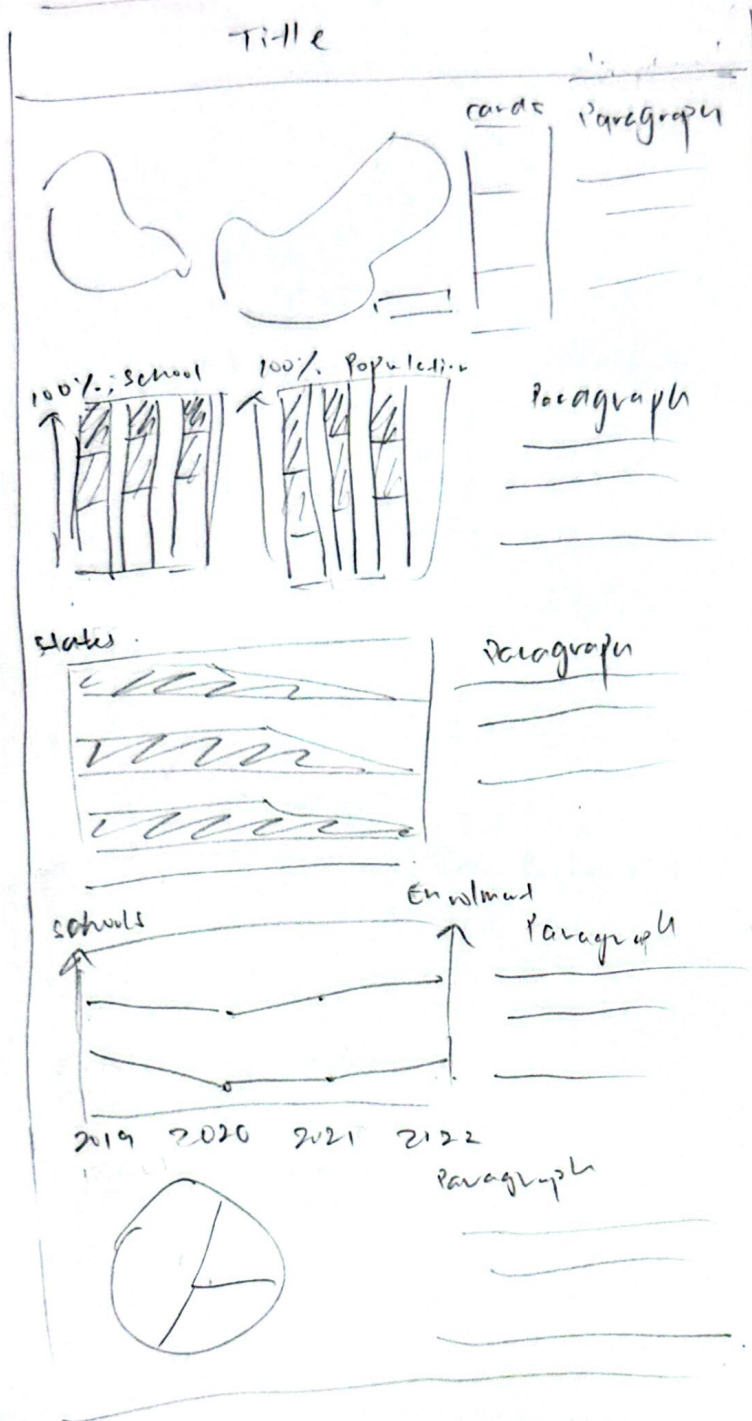 Title
cards Paragraph
100% ; School 100% Population Paragraph
States . Paragraph
Schools Enrolment Paragraph
2019 2020 2021 2122
Paragraph